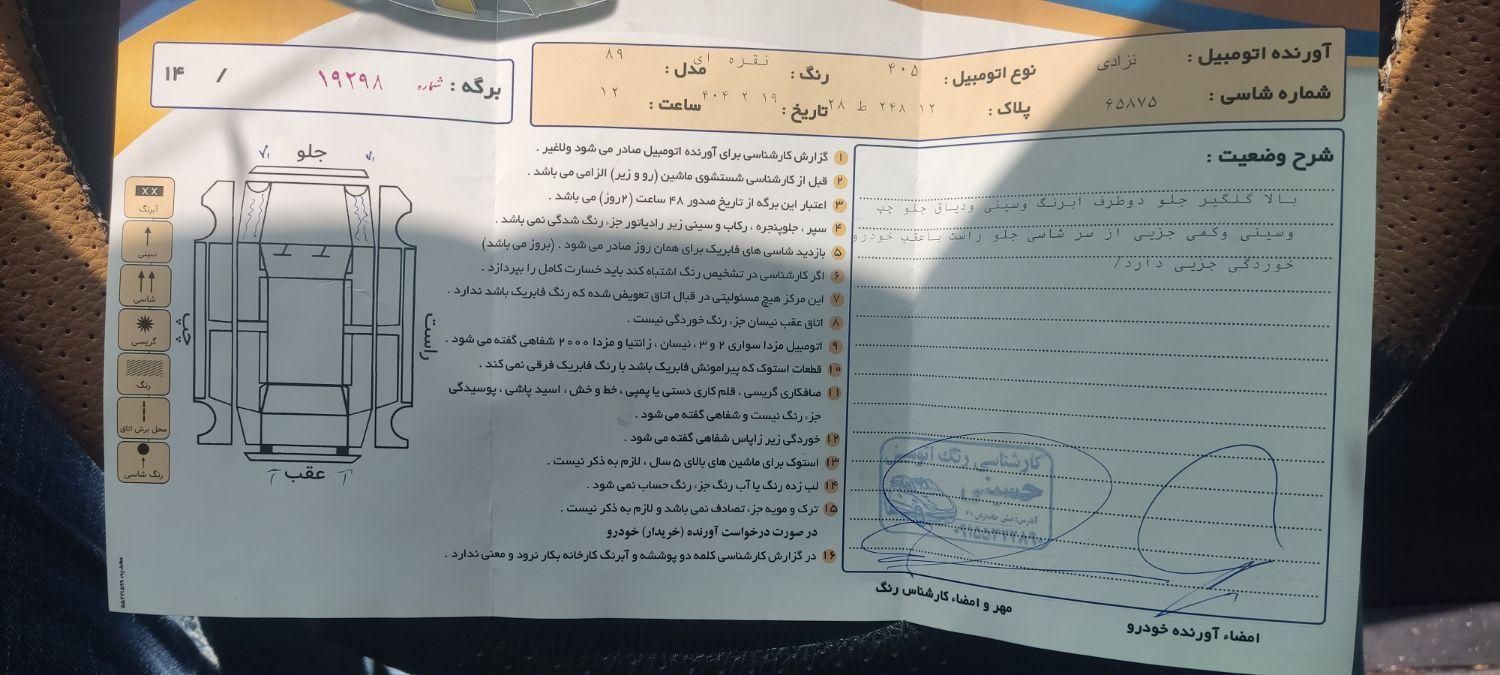 آورنده اتومبیل : نژادی نوع اتومبیل : ۴۰۵ رنگ : نقره ای مدل : ۸۹
شماره شاسی : ۶۵۸۷۵ پلاک : ۱۲ ۲۴۸ ط ۲۸ تاریخ : ۱۹ ۲ ۴۰۴ ساعت : ۱۲
برگه : شماره ۱۹۲۹۸ / ۱۴
شرح وضعیت :
بالا گلگیر جلو دوطرف ابرنگ وسینی ودیاق جلو چپ
وسینی وکمی جزیی از سر شاسی جلو راست باعقب خودرو
خوردگی جزیی دارد/
۱ گزارش کارشناسی برای آورنده اتومبیل صادر می شود ولاغیر .
۲ قبل از کارشناسی شستشوی ماشین (رو و زیر) الزامی می باشد .
۳ اعتبار این برگه از تاریخ صدور ۴۸ ساعت (۲روز) می باشد .
۴ سپر ، جلوپنجره ، رکاب و سینی زیر رادیاتور جزء رنگ شدگی نمی باشد .
۵ بازدید شاسی های فابریک برای همان روز صادر می شود . (بروز می باشد)
۶ اگر کارشناسی در تشخیص رنگ اشتباه کند باید خسارت کامل را بپردازد .
۷ این مرکز هیچ مسئولیتی در قبال اتاق تعویض شده که رنگ فابریک باشد ندارد .
۸ اتاق عقب نیسان جزء رنگ خوردگی نیست .
۹ اتومبیل مزدا سواری ۲ و ۳ ، نیسان ، زانتیا و مزدا ۲۰۰۰ شفاهی گفته می شود .
۱۰ قطعات استوک که پیرامونش فابریک باشد با رنگ فابریک فرقی نمی کند .
۱۱ صافکاری گریسی ، قلم کاری دستی یا پمپی ، خط و خش ، اسید پاشی ، پوسیدگی
جزء رنگ نیست و شفاهی گفته می شود .
۱۲ خوردگی زیر زاپاس شفاهی گفته می شود .
۱۳ استوک برای ماشین های بالای ۵ سال ، لازم به ذکر نیست .
۱۴ لب زده رنگ یا آب رنگ جزء رنگ حساب نمی شود .
۱۵ ترک و مویه جزء تصادف نمی باشد و لازم به ذکر نیست .
در صورت درخواست آورنده (خریدار) خودرو
۱۶ در گزارش کارشناسی کلمه دو پوششه و آبرنگ کارخانه بکار نرود و معنی ندارد .
جلو
راست
چپ
عقب
آبرنگ
سینی
شاسی
گریسی
رنگ
محل برش اتاق
رنگ شاسی
کارشناسی رنگ اتومبیل
مهر و امضاء کارشناس رنگ
امضاء آورنده خودرو